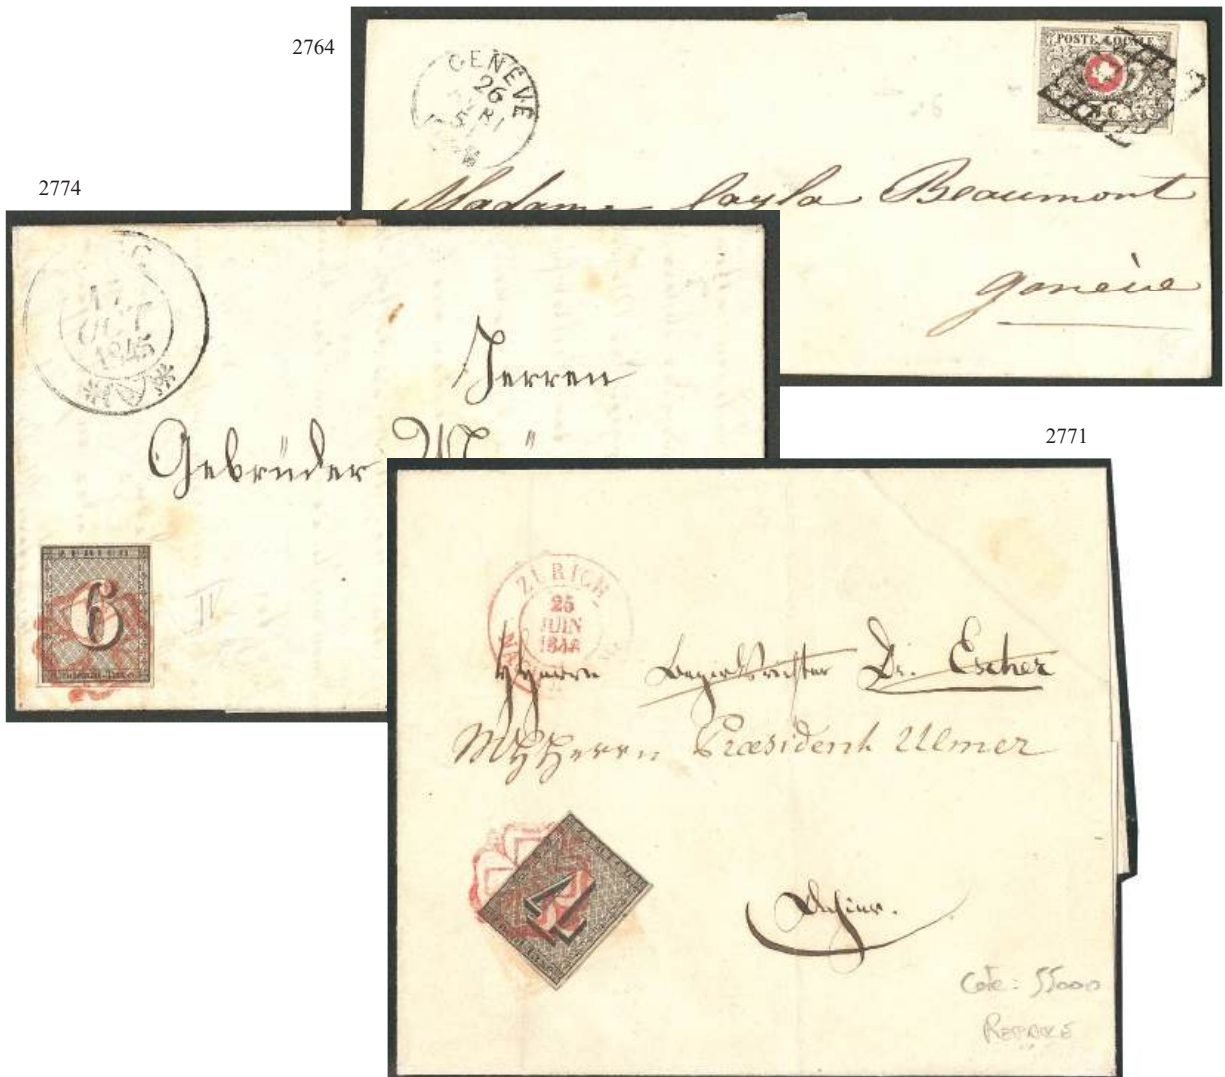 2764
GENÈVE
26
51
POSTE LOCALE
Madame Cayla Beaumont
Genève
2774
17
OCT
1845
Herren
Gebrüder
ZÜRICH
6
Cantonal-Taxe
2771
ZÜRICH
25
JUIN
1846
HHerrn Bezirksrichter Dr. Escher
MHHHerrn Præsident Ulmer
4
Cote: 55000
REPARÉ